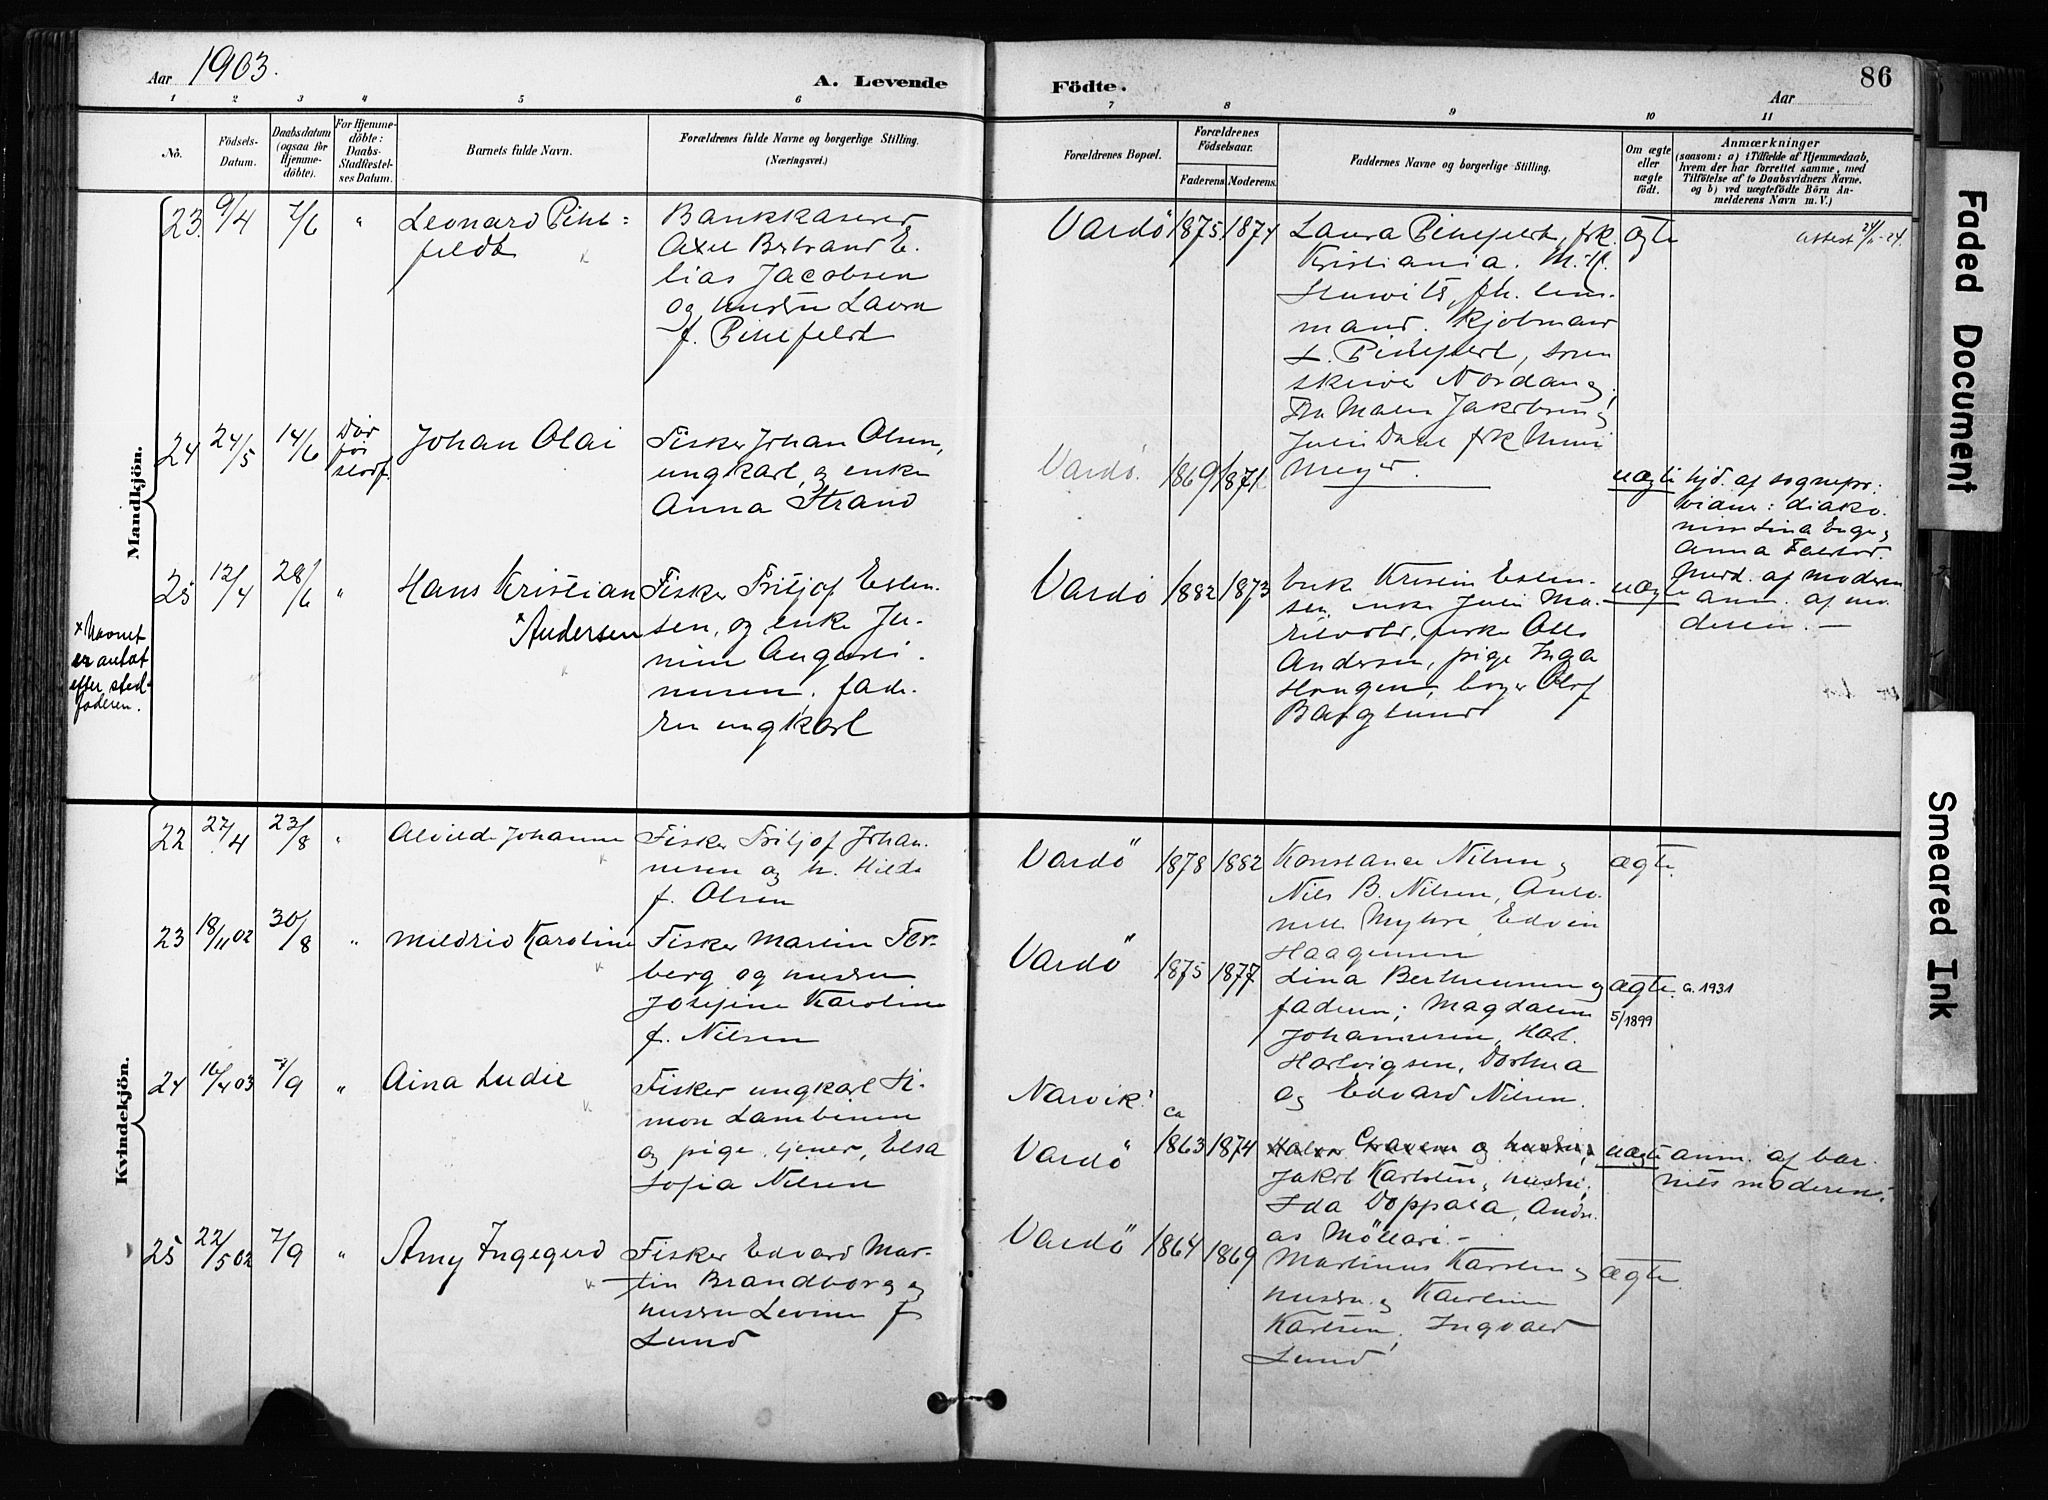 Aar 1903.
A. Levende
Födte.
Aar
86
1 2 3 4 5 6 7 8 9 10 11
No.
Födsels-
Datum.
Daabsdatum
(ogsaa for
Hjemme-
döbte).
For Hjemme-
döbte:
Daabs-
Stadfæstel-
ses Datum.
Barnets fulde Navn.
Forældrenes fulde Navne og borgerlige Stilling.
(Næringsvei.)
Forældrenes Bopæl.
Forældrenes
Födselsaar.
Faderens. Moderens.
Faddernes Navne og borgerlige Stilling.
Om ægte
eller
uægte
födt.
Anmærkninger
(saasom: a) i Tilfælde af Hjemmedaab,
hvem der har forrettet samme, med
Tilföielse af to Daabsvidners Navne.
og b) ved uægtefödte Börn An-
melderens Navn m. V.)
Mandkjön.
23. 9/4 7/6 "
Leonard Pihl=
feldt
Bankkaserer
Axel Bertrand E.
lias Jacobsen
og hustru Laura
f. Pihlfeldt
Vardö 1875 1874
Laura Pihlfeldt, frk.
Kristiania. M. H.
Hurwits, fh. len.
mand. Kjøbmand
L. Pihlfeldt, soren
skriver Nordan
Fru Malen Jakobsen
Julie Dahl frk
Meyer.
ægte
Attest 24/11-24.
24 24/5 14/6
Dør
før
stadf.
Johan Olai
Fisker Johan Olsen,
ungkarl, og enke
Anna Strand
Vardö. 1869 1871
uægte
hjd. af sognepr:
vidner: diako.
nisse Lina Enge
Anna Falstad.
25 12/4 28/6 "
Hans Kristian
x Andersen
x Navnet
er antat
efter sted-
faderen.
Fisker Fritjof Esten-
sen, og enke Je-
nine Augusti.
nusen, fade.
ren ungkarl
Vardö 1882 1873
Enke Kristin Esten-
sen, enke Julie Ma-
Andersen, pige Inga
Haugen, bager Olof
Bagglund
uægte
af moderen
anm. af mo
deren. —
Kvindekjön.
22 27/4 23/8 "
Alvilde Johanne
Fisker Fritjof Johan.
nesen og h. Hilda
f. Olsen
Vardö 1878 1882
Konstance Nilsen og
Nils B. Nilsen, Anto.
nette Myhre, Edvin
Haagensen
ægte.
23 18/11 02 30/8 "
Mildrid Karoline
Fisker Martin For-
berg og hustru
Josefine Karoline
f. Nilsen
Vardö 1875 1877
Lina Bertheussen og
faderen; Magdalene
Johannesen, Karl.
Hartvigsen, Dorthea
og Edvard Nilsen.
ægte. G. 1931
5/1899
24 16/4 03 7/9 "
Aina Ludie
Fisker ungkarl Si-
mon Lambinen
og pige, tjener, Elsa
Sofia Nilsen
Narvik!
Vardö ca 1863 1874
Jakob Karlsten, hustru,
Ida Doppala, Andre.
as Möllari. —
uægte
anm. af bar.
nets moderen.
25 22/5 02 7/9 "
Amy Ingegerd
Fisker Edvard Mar-
tin Brandborg og
hustru Levine f
Lund
Vardö 1864 1869
Martinus Karsten og
hustru og Karoline
Karlsen, Ingvald
Lund
ægte.
Faded Document
Smeared Ink